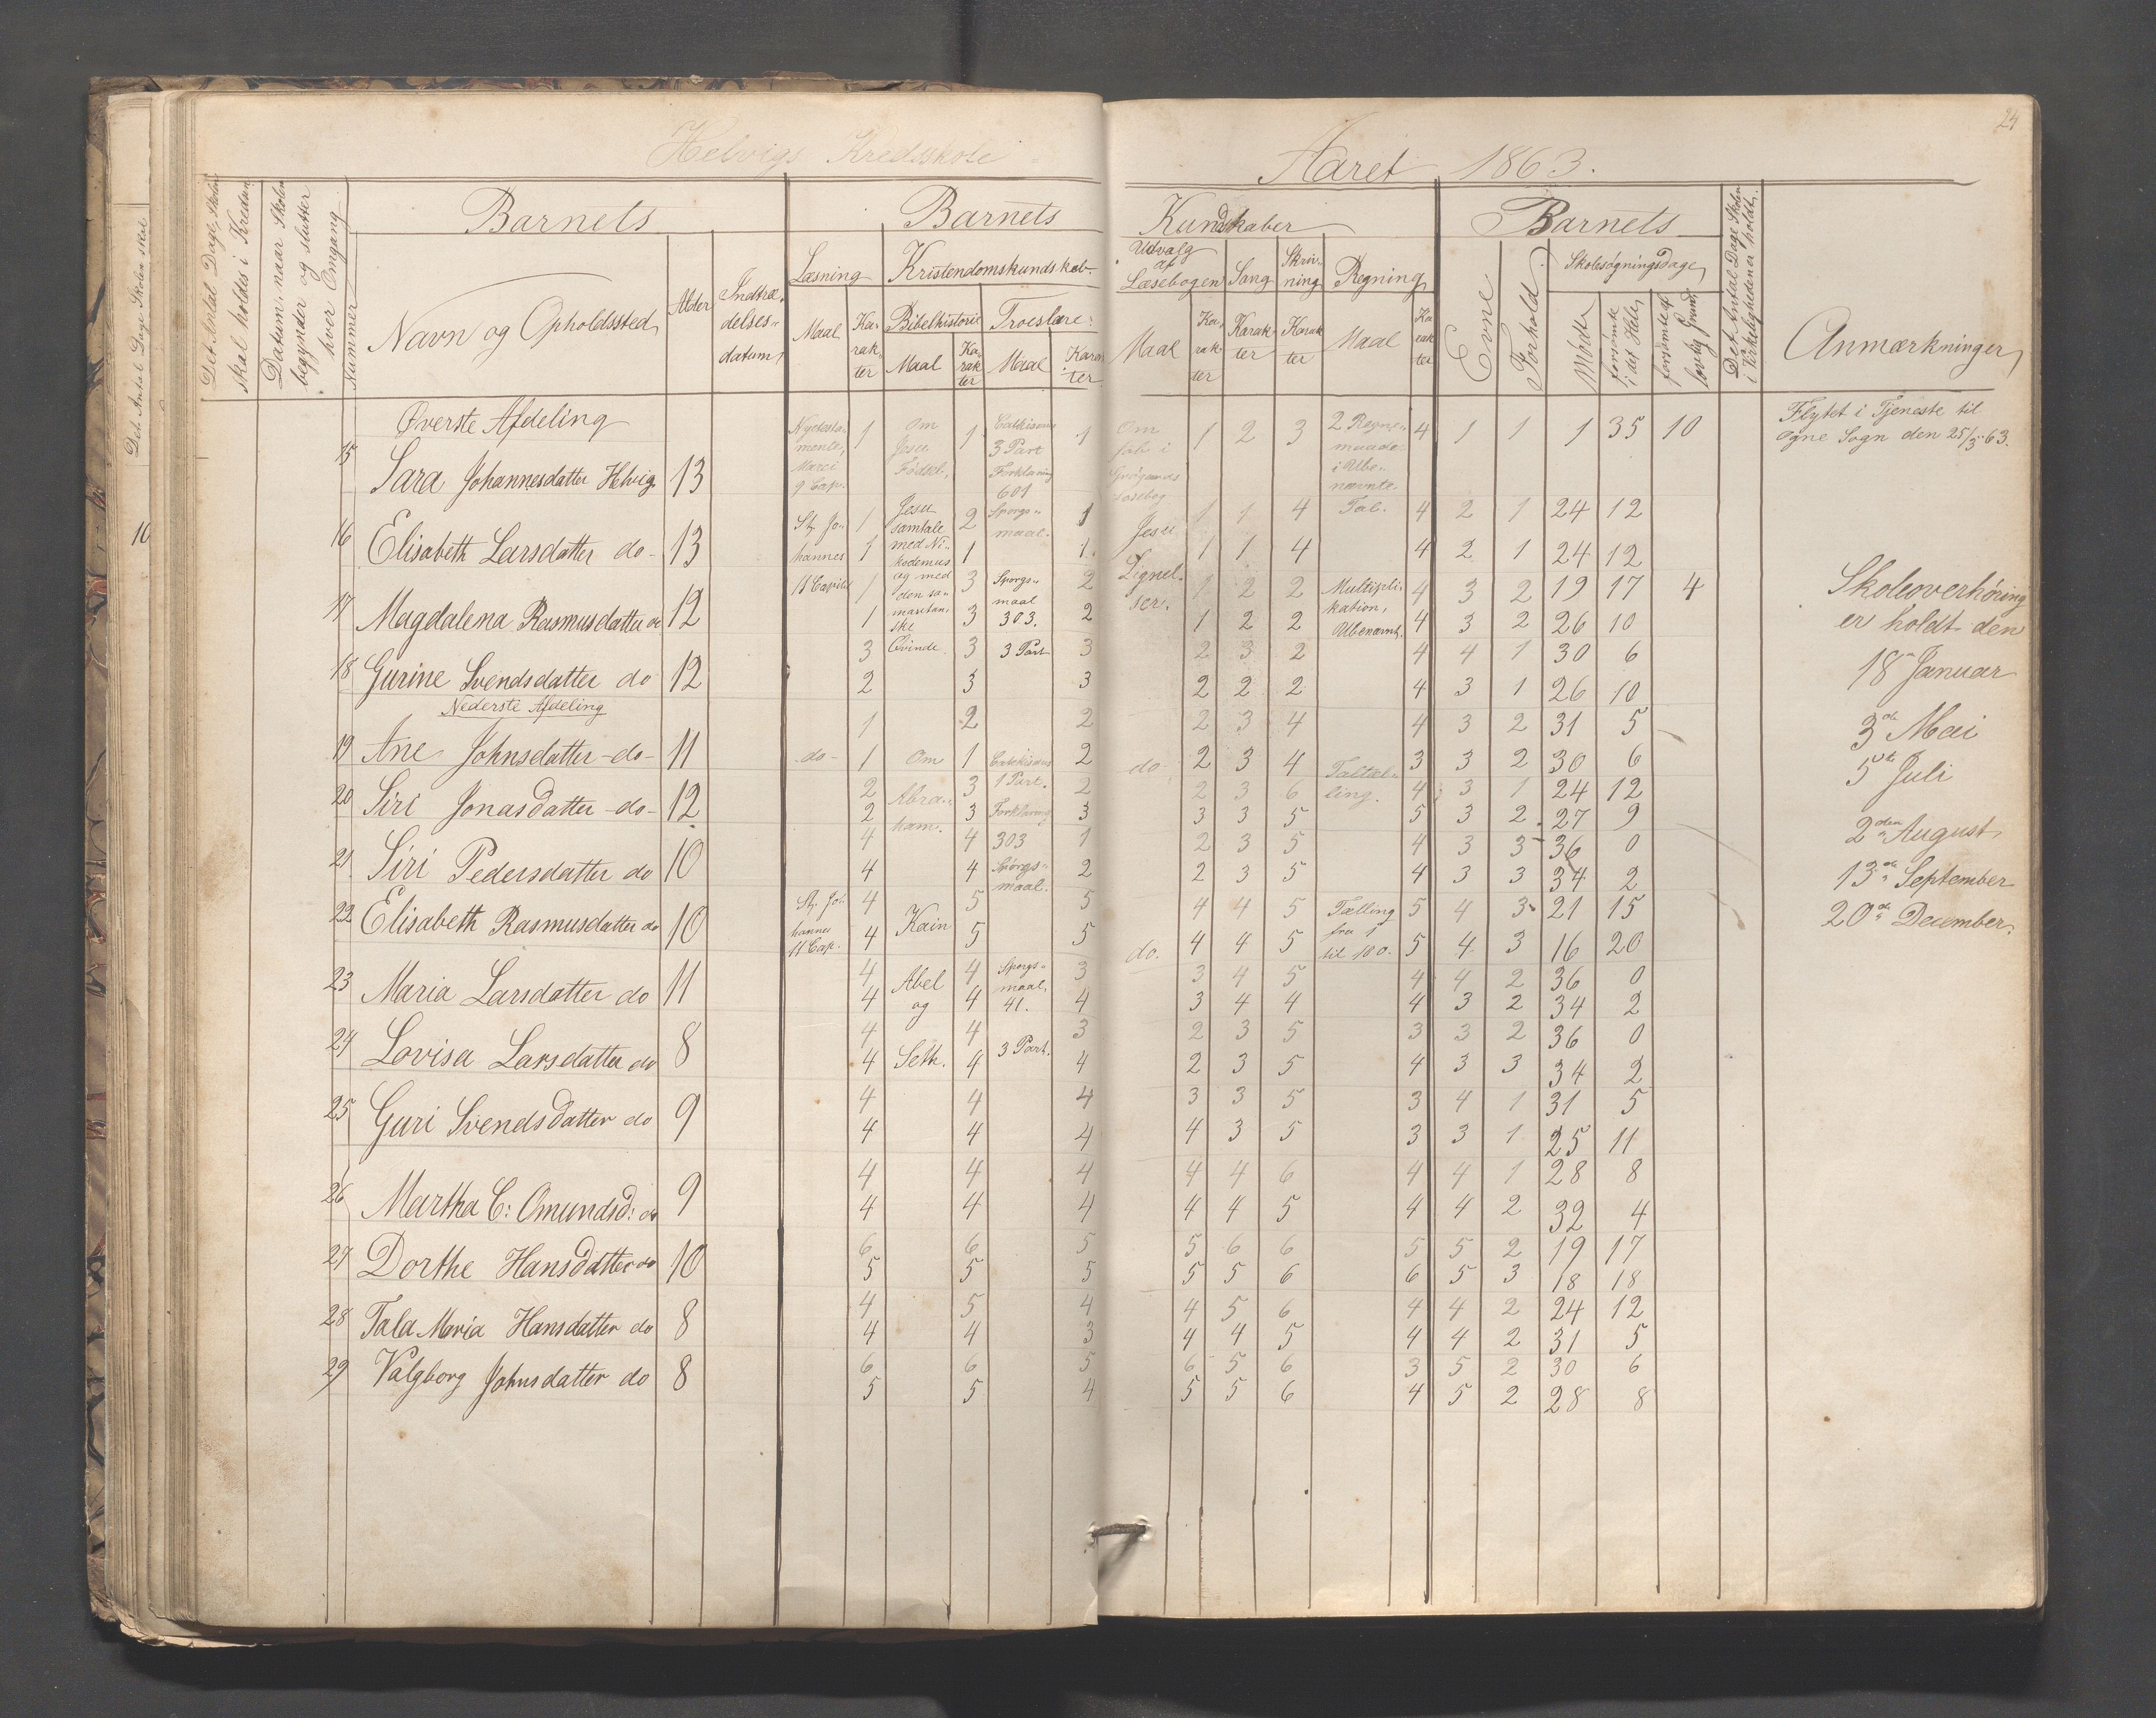 Helvigs Kredsskole
Aaret 1863.
24
Det Antal Dage Skolen skal
10
Det Antal Dage, Skolen skal holdes i Kredsen
Datum, naar Skolen begynder og slutter hver Omgang
Nummer
Barnets
Navn og Opholdssted
Alder
Indtræ-
delses-
datum
Barnets
Læsning
Maal
Ka-
rak-
ter
Kristendomskundskab
Bibelhistorie
Maal
Ka-
rak
ter
Troeslære
Maal
Karak
ter
Kundskaber
Udvalg
af
Læsebogen
Maal
Ka-
rak-
ter
Sang
Karak-
ter
Skriv-
ning
Karak
ter
Regning
Maal
Ka
rak
ter
Barnets
Evne
Forhold
Skolesøgningsdage
Mødte
forsømte i det Hele
forsømte af lovlig Grund
Det Antal Dage Skolen i Virkeligheden er holdt.
Anmærkninger
Øverste Afdeling
15 Sara Johannesdatter Helvig 13
Nytesta-
mente,
Marci
9 Cap.
1
Om
Jesu
Fødsel,
1
Catkisems
3 Part
Forklaring
601
Spørgs-
maal.
1
Om
1 2 3
2 Regne-
maade
i Ube-
nævnte
Tal.
4 1 1 1 35 10
Flytet i Tjeneste til
Ogne Sogn den 25/5 63.
16 Elisabeth Larsdatter do 13
St. Jo-
hannes
11 Capitel
1
Jesu
samtale
med Ni-
kodemus
og med
den sa-
maritan-
ske
Qvinde
2 1
Jesu
Lignel-
ser.
1 1 4 4 2 1 24 12
1 1 1 1 1 4 4 2 1 24 12
17 Magdalena Rasmusdatter do 12
1 3
Spørgs-
maal
303.
3 Part
2 1 2 2
Multipli-
kation,
Ubenævnt.
4 3 2 19 17 4
1 3 2 1 2 2 4 3 2 26 10
18 Gurine Svendsdatter do 12
3 3 3 2 3 2 4 4 1 30 6
2 3 3 2 2 2 4 3 1 26 10
Skoleoverhøring
er holdt den
18 Januar
3de Mai
5te Juli
2den August
13de September
20de December.
Nederste Afdeling
19 Ane Johnsdatter do 11
1 2 2 2 3 4 4 3 2 31 5
do 1 Om 1 Catekisems 2 do 2 3 4 3 3 2 30 6
20 Siri Jonasdatter do 12
2 Abra- 3 1 Part. 2 2 3 6
Taltæl-
ling.
4 3 1 24 12
2 ham. 3 Forklaring 3 3 3 5 5 3 2 27 9
21 Siri Pedersdatter do 10
4 4 303 1 2 3 5 4 3 3 36 0
4 4 Spørgs- 2 2 3 5 4 3 3 34 2
maal.
22 Elisabeth Rasmusdatter do 10
St. Jo-
hannes
11 Cap.
4 Kain 5 5 4 4 5
Tælling
fra 1
til 100.
5 4 3 21 15
4 5 5 do. 4 4 5 5 4 3 16 20
23 Maria Larsdatter do 11
4 Abel 4 Spørgs- 3 3 4 5 4 4 2 36 0
maal.
4 og 4 41. 4 3 4 4 4 3 2 34 2
24 Lovisa Larsdatter do 8
4 4 3 2 3 5 3 3 2 36 0
4 Seth. 4 3 Part. 4 2 3 5 4 3 3 34 2
25 Guri Svendsdatter do 9
4 4 4 3 3 5 3 4 1 31 5
4 4 4 4 3 5 3 3 1 25 11
26 Martha C: Omundsd: do 9
4 4 4 4 4 6 4 4 1 28 8
4 4 4 4 4 5 4 4 2 32 4
27 Dorthe Hansdatter do 10
6 6 5 5 6 6 5 5 2 19 17
5 5 5 5 5 6 6 5 3 18 18
28 Tala Maria Hansdatter do 8
4 5 4 4 5 6 4 4 2 24 12
4 4 3 4 4 5 4 4 2 31 5
29 Valgborg Johnsdatter do 8
6 6 5 6 5 6 3 5 2 30 6
5 5 4 5 5 6 4 5 2 28 8